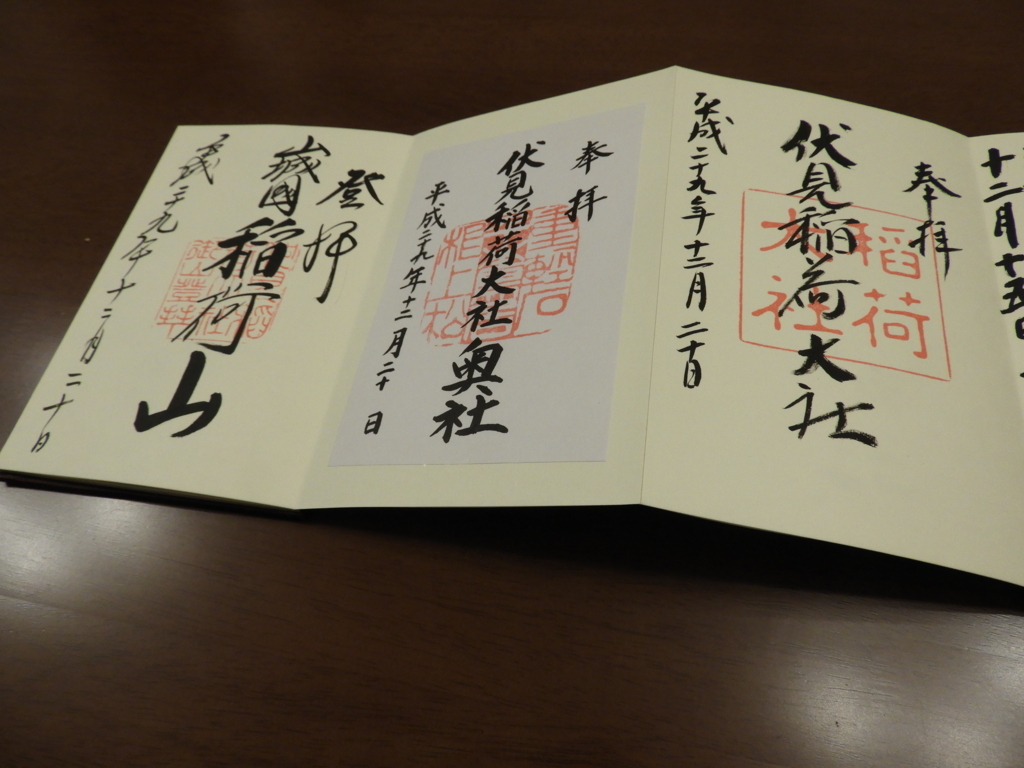 十二月十五日
奉拝
伏見稲荷大社
平成二十九年十二月二十日
稲荷
大社
奉拝
伏見稲荷大社奥社
平成二十九年十二月二十日
登拝
稲荷山
平成二十九年十二月二十日